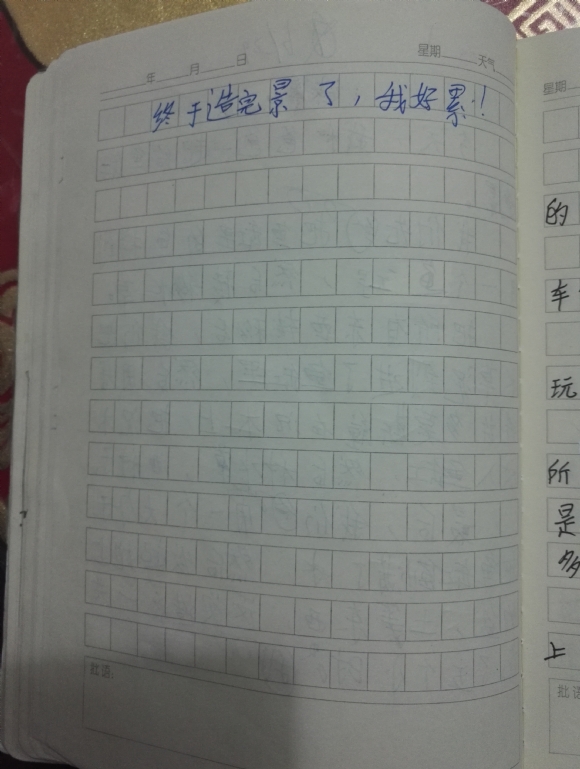 年 月 日 星期 天气
终于造完景了，我好累！
批语：
星期
的
车
玩
所
是
多
上
批语